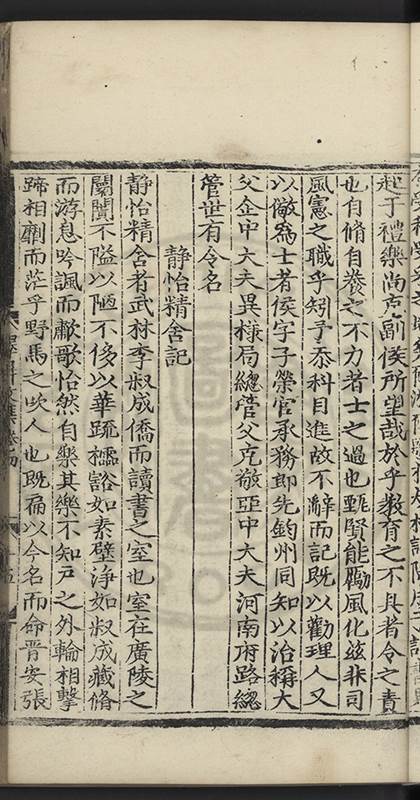 起于禮樂尚克副侯所望哉於乎教育之不具者令之責
也自脩自養之不力者士之過也甄賢能勵風化茲非司
風憲之職乎矧予忝科目進故不辭而記既以勸理人又
以儆為士者侯字子榮官承務郎先鈞州同知以治稱大
父企中大夫異樣局總管父克敬亞中大夫河南府路總
管世有令名
靜怡精舍記
靜怡精舍者武林李叔成僑而讀書之室也室在廣陵之
闤闠不隘以陋不侈以華疏櫺谽如素壁淨如叔成藏脩
而游息吟諷而歗歌怡然自樂其樂不知戶之外輪相擊
蹄相劘而茫乎野馬之吹人也既扁以今名而命晋安張